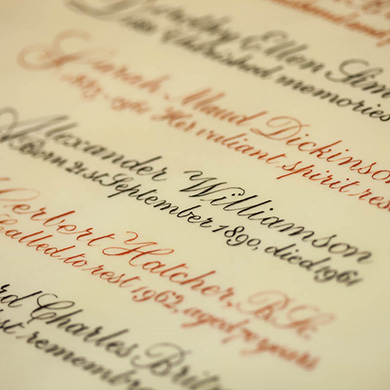 Ellen Sim
cherished memories
Sarah Maud Dickinson
Her valiant spirit res
Alexander Williamson
Born 21st September 1890, died 1961
Herbert Hatcher, B.Sc.
Called to rest 1962, aged 70 years
rd Charles Brit
st remembra